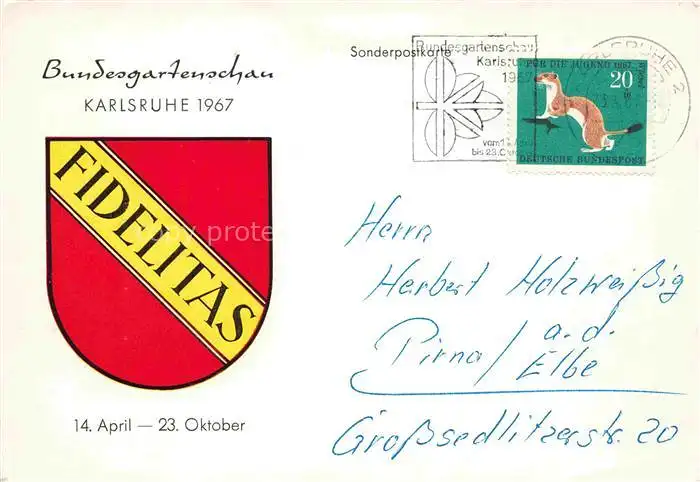 Bundesgartenschau
KARLSRUHE 1967
FIDELITAS
14. April — 23. Oktober
Sonderpostkarte
Bundesgartenschau
Karlsruhe
1967
vom 14. April
bis 23. Oktober
FÜR DIE JUGEND 1967
20
DEUTSCHE BUNDESPOST
KARLSRUHE 2
Herrn
Herbert Holzweißig
Pirna / a. d.
Elbe
Großsedlitzerstr. 20